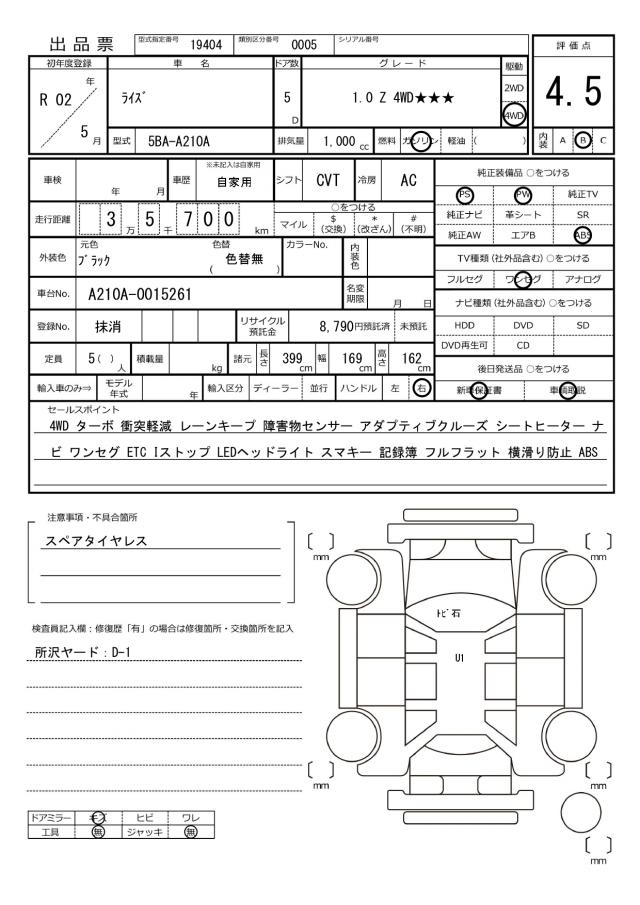 出品票 型式指定番号 19404 類別区分番号 0005 シリアル番号
評価点
4.5
初年度登録 車名 ドア数 グレード 駆動
R 02 年 5 月
ﾗｲｽﾞ 5 D 1.0 Z 4WD★★★ 2WD 4WD
型式 5BA-A210A 排気量 1,000 cc 燃料 ガソリン 軽油 ( )
内装 A B C
車検 年 月 車歴 ※未記入は自家用 自家用 シフト CVT 冷房 AC
純正装備品 ○をつける
PS PW 純正TV
純正ナビ 革シート SR
純正AW エアB ABS
走行距離 3 万 5 千 7 0 0 km
○をつける
マイル $(交換) *(改ざん) #(不明)
外装色 元色 ﾌﾞﾗｯｸ 色替 ( 色替無 ) カラーNo. 内装色
TV種類 (社外品含む) ○をつける
フルセグ ワンセグ アナログ
車台No. A210A-0015261 名変期限 月 日
ナビ種類 (社外品含む) ○をつける
登録No. 抹消 リサイクル預託金 8,790円預託済 未預託
HDD DVD SD
DVD再生可 CD
定員 5 ( ) 人 積載量 kg 諸元 長さ 399 cm 幅 169 cm 高さ 162 cm
後日発送品 ○をつける
新車保証書 車輌取説
輸入車のみ⇒ モデル年式 年 輸入区分 ディーラー 並行 ハンドル 左 右
セールスポイント
4WD ターボ 衝突軽減 レーンキープ 障害物センサー アダプティブクルーズ シートヒーター ナ
ビ ワンセグ ETC Iストップ LEDヘッドライト スマキー 記録簿 フルフラット 横滑り防止 ABS
注意事項・不具合箇所
スペアタイヤレス
検査員記入欄：修復歴「有」の場合は修復箇所・交換箇所を記入
所沢ヤード：D-1
〔 〕 mm
〔 〕 mm
ﾄﾋﾞ石
U1
〔 〕 mm
〔 〕 mm
〔 〕 mm
ドアミラー キズ ヒビ ワレ
工具 無 ジャッキ 無